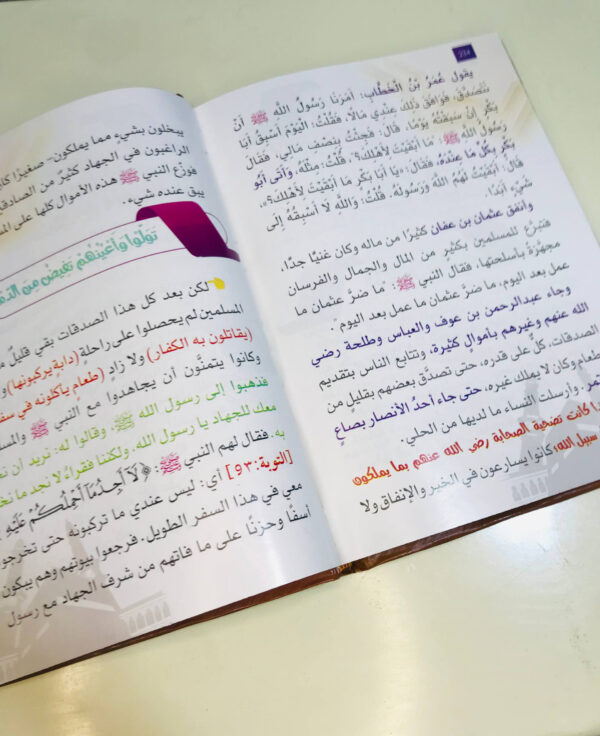 934
يقول عُمَرُ بْنُ الْخَطَّابِ: أَمَرَنَا رَسُولُ اللَّهِ ﷺ أَنْ
نَتَصَدَّقَ، فَوَافَقَ ذَلِكَ عِنْدِي مَالًا، فَقُلْتُ: الْيَوْمَ أَسْبِقُ أَبَا
بَكْرٍ إِنْ سَبَقْتُهُ يَوْمًا، قَالَ: فَجِئْتُ بِنِصْفِ مَالِي، فَقَالَ
رَسُولُ اللَّهِ ﷺ: مَا أَبْقَيْتَ لِأَهْلِكَ؟، قُلْتُ: مِثْلَهُ، وَأَتَى أَبُو
بَكْرٍ بِكُلِّ مَا عِنْدَهُ، فَقَالَ: «يَا أَبَا بَكْرٍ مَا أَبْقَيْتَ لِأَهْلِكَ؟»،
قَالَ: أَبْقَيْتُ لَهُمُ اللَّهَ وَرَسُولَهُ، قُلْتُ: وَاللَّهِ لَا أَسْبِقُهُ إِلَى
شَيْءٍ أَبَدًا.
وأنفق عثمان بن عفان كثيرًا من ماله وكان غنيًا جدًا،
فتبرَّع للمسلمين بكثير من المال والجمال والفرسان
مجهَّزة بأسلحتها، فقال النبي ﷺ: "ما ضرَّ عثمان ما
عمل بعد اليوم، ما ضرَّ عثمان ما عمل بعد اليوم".
وجاء عبدالرحمن بن عوف والعباس وطلحة رضي
الله عنهم وغيرهم بأموالٍ كثيرة، وتتابع الناس بتقديم
الصدقات، كلٌّ على قدره، حتى تصدَّق بعضهم بقليلٍ من
طعام وكان لا يملك غيره، حتى جاء أحدُ الأنصار بصاع
تمر. وأرسلت النساء ما لديها من الحلي.
كانت تضحية الصحابة رضي الله عنهم بما يملكون
سبيل الله؛ كانوا يسارعون في الخير والإنفاق ولا
يبخلون بشيءٍ مما يملكون- صغيرًا
الراغبون في الجهاد كثيرٌ من
فوزّع النبي ﷺ هذه الأموال كلها على
يبق عنده شيء.
تَوَلَّوْا وَأَعْيُنُهُمْ تَفِيضُ مِنَ
لكن بعد كل هذا الصدقات بقي قليلٌ
المسلمين لم يحصلوا على راحلةٍ (دابة يركبونها)
(يقاتلون به الكفار) ولا زادٍ (طعام يأكلونه في
وكانوا يتمنَّون أن يجاهدوا مع النبي ﷺ
فذهبوا إلى رسول الله ﷺ، وقالوا له: نريد أن
معك للجهاد يا رسول الله، ولكننا فقراءُ لا نجد ما
به. فقال لهم النبي ﷺ: ﴿ لَا أَجِدُ مَا أَحْمِلُكُمْ عَلَيْهِ
[التوبة:٩٣] أي: ليس عندي ما تركبونه حتى
معي في هذا السفر الطويل. فرجعوا بيوتهم وهم يبكون
أسفًا وحزنًا على ما فاتهم من شرف الجهاد مع رسول